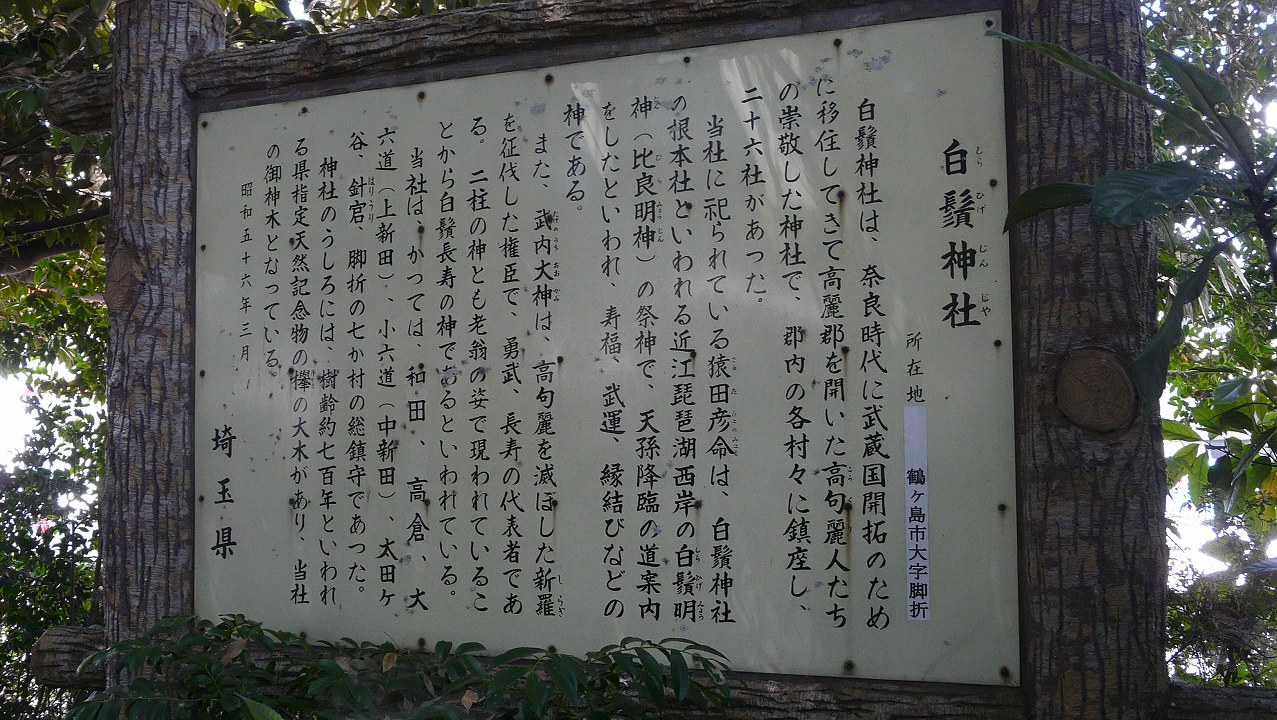 白鬚神社
所在地 鶴ヶ島市大字脚折
白鬚神社は、奈良時代に武蔵国開拓のため
に移住してきて高麗郡を開いた高句麗人たち
の崇敬した神社で、郡内の各村々に鎮座し、
二十六社があった。
当社に祀られている猿田彦命は、白鬚神社
の根本社といわれる近江琵琶湖西岸の白鬚明
神（比良明神）の祭神で、天孫降臨の道案内
をしたといわれ、寿福、武運、縁結びなどの
神である。
また、武内大神は、高句麗を滅ぼした新羅
を征伐した権臣で、勇武、長寿の代表者であ
る。二柱の神とも老翁の姿で現われているこ
とから白鬚長寿の神であるといわれている。
当社は、かつては、和田、高倉、大
六道（上新田）、小六道（中新田）、太田ヶ
谷、針宮、脚折の七か村の総鎮守であった。
神社のうしろには、樹齢約七百年といわれ
る県指定天然記念物の欅の大木があり、当社
の御神木となっている。
昭和五十六年三月
埼玉県